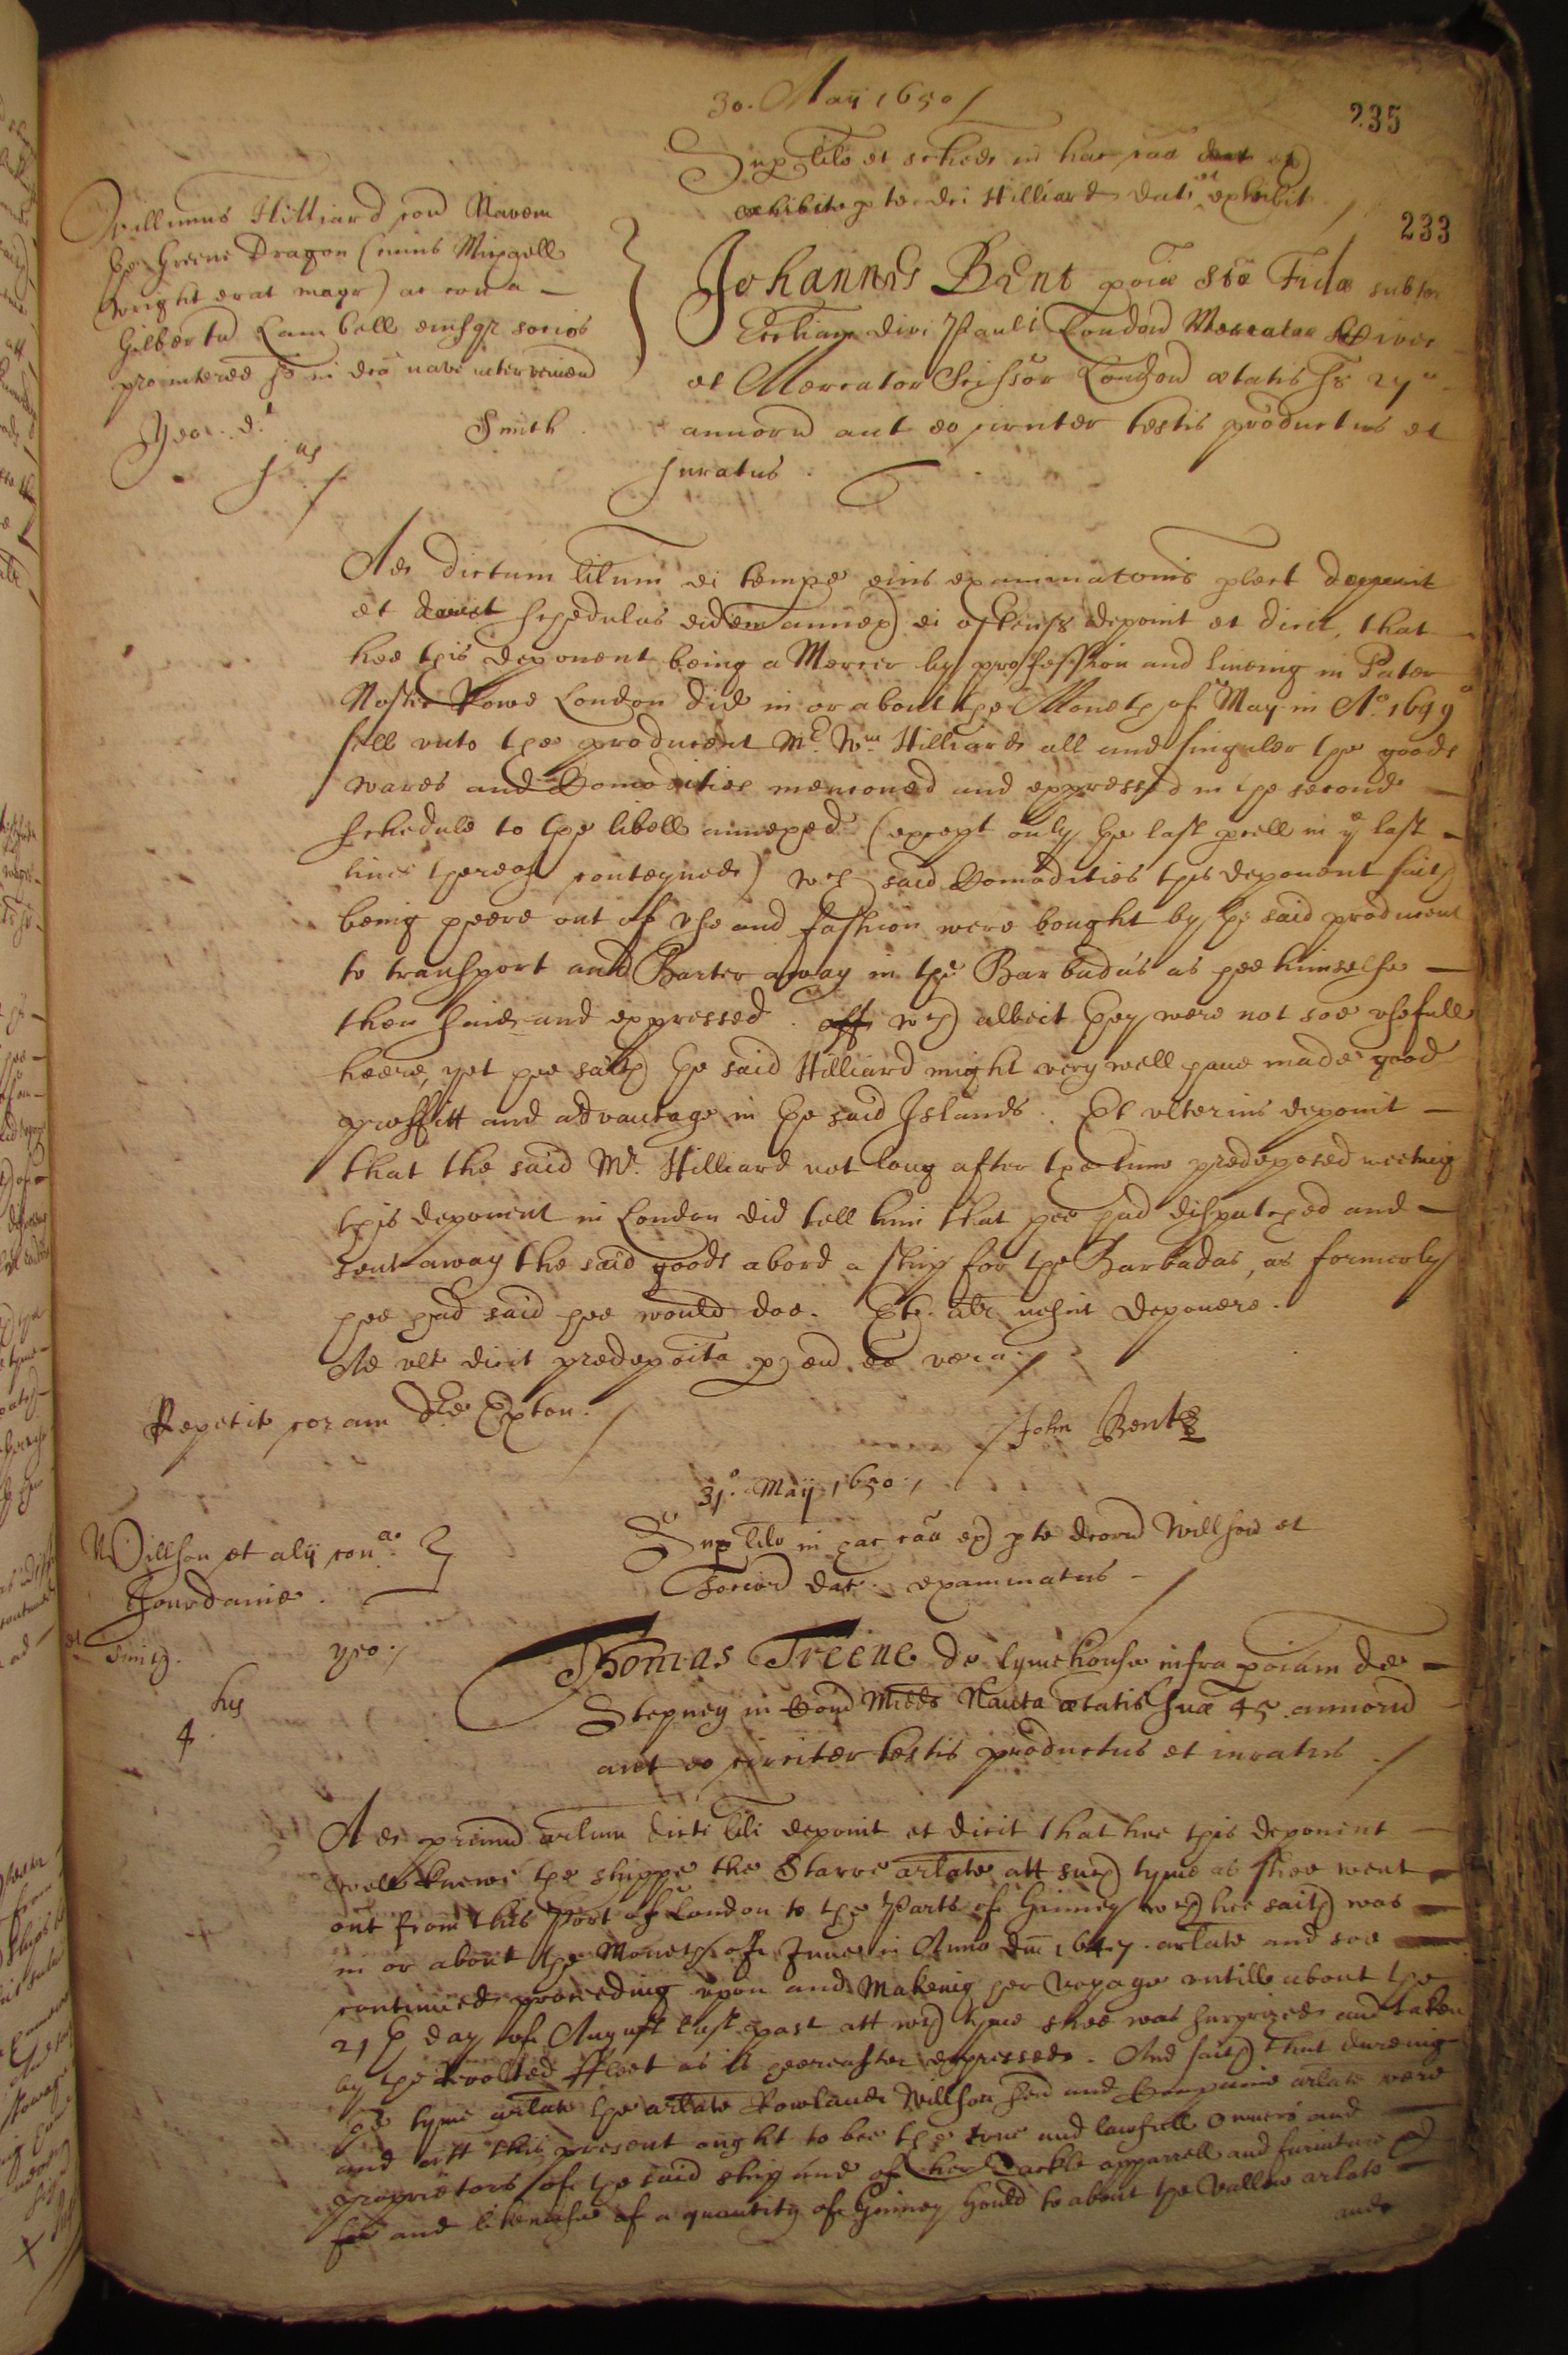 30. Maii 1650
235
Sup lilo et schedis in hac caa dat et
exhibit p te dci Hilliard dat et exhibit
233
Willimus Hilliard con Navem
the Greene Dragon (cuius Michaell
Wright erat magr) ac cona
Gilbertu Cambell eiusqz socios
pro interesse so in dca nave intervenien
Smith
Johannes Bent poiæ Stæ Fidæ subter
Ecctiam divi Pauli London
et Mercator Scissor London ætatis ss 27
annoru aut eo circiter testis productus et
Juratus
Ad dictum lilum ei tempe eius examinatonis plect deponit
et schedulas eidem annex ei ostenss deponit et dicit, that
hee this deponent being a Mercer by profession and liveing in Pater
Noster Rowe London did in or about the Moneth of May in Ao. 1649
sell unto the producent Mr. Wm Hilliard all and singuler the goods
wares and Comodities menconed and expressed in the second
schedule to the libell annexed (except only the last pcell in ye last
line thereof conteyned) wch said Comodities this deponent saith
being heere out of use and fashion were bought by the said producent
to transport and Barter away in the Barbadus as hee himselfe
then said and expressed. wch albeit they were not soe usefull
heere, yet hee saith the said Hilliard might very well have made good
proffitt and advantage in the said Islands. Et ulterius deponit
that the said Mr. Hilliard not long after the time predeposed meeting
this deponent in London did tell him that hee had dispatched and
sent away the said goods abord a ship for the Barbadas, as formerly
hee had said hee would doe. Etr. alr nescit deponere.
Ad ult dicit prædeposita p eu ee vera
Repetit coram dre Exton.
John Bent
31o. Maij 1650
Willson et alij cona
Jourdanie.
Sup lilo in hac caa ex pte dcoru Willson et
socioru dat. examinatus
Smith.
pro
jus
4
Thomas Treene de Lymehouse infra poiam de
Stepney in Com Midds Nauta ætatis suæ 45 annoru
aut eo circiter testis productus et iuratus
Ad primu artum dicti lili deponit et dicit that hee this deponent
well knewe the shippe the Starre arlate att such tyme as shee went
out from this Port of London to the Parts of Ginney wch hee saith was
in or about the Moneth of June in Anno Dni 1647. arlate and soe
continued proceeding upon and Makeing her Voyage untill about the
21th day of August last past att wch tyme shee was surprized and taken
by the revolted ffleet as is heereafter expressed. And saith that dureing
the tyme arlate the arlate Rowland Willson sen and Companie arlate were
and att this present ought to bee the true and lawfull owners and
proprietors of the said ship and of her Tackle apparrell and furniture
and likewise of a quantity of Ginney Gould to about the Vallew arlate
and